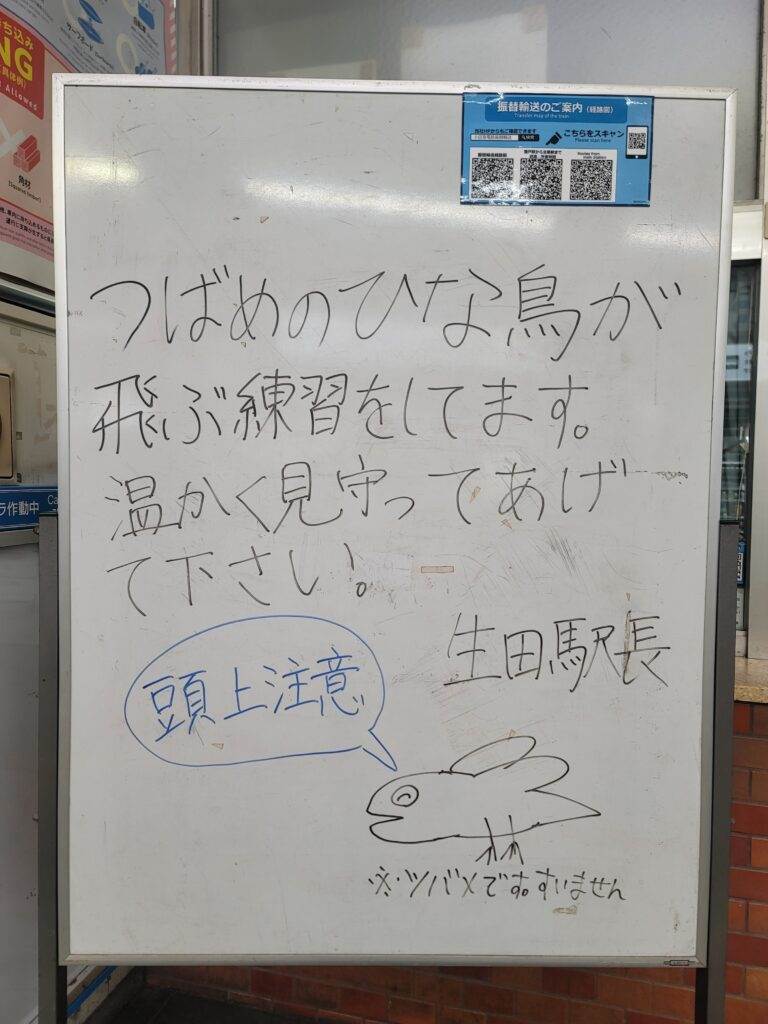 振替輸送のご案内(経路図)
Transfer map of the train
こちらをスキャン
Please scan here
つばめのひな鳥が
飛ぶ練習をしてます。
温かく見守ってあげ
て下さい。
生田駅長
頭上注意
※ツバメです。すいません
NG
Allowed
角材
ラ作動中